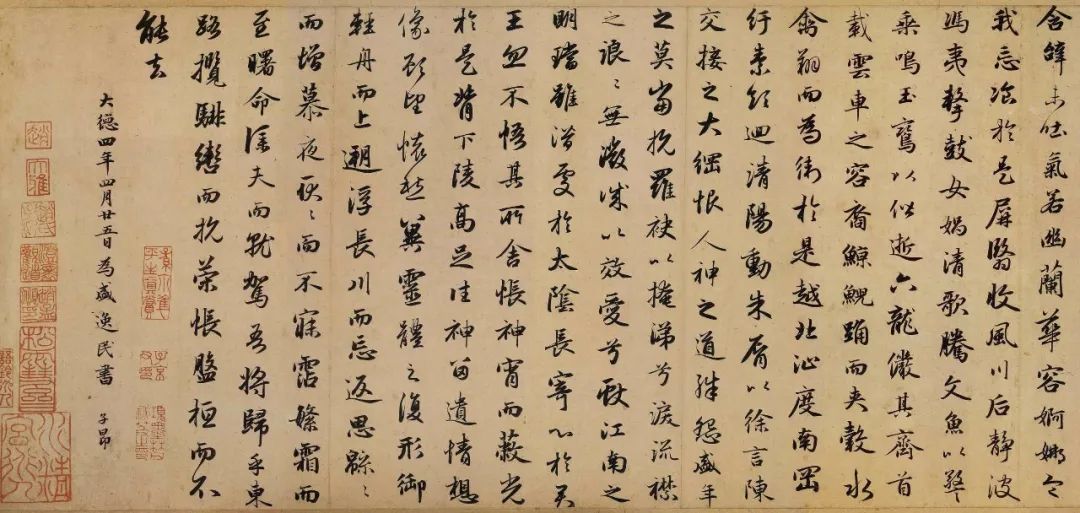 含辭未吐氣若幽蘭華容婀娜令
我忘飡於是屏翳收風川后靜波
馮夷擊鼓女媧清歌騰文魚以警
乘鳴玉鸞以偕逝六龍儼其齊首
載雲車之容裔鯨鯢踊而夾轂水
禽翔而為衛於是越北沚度南岡
紆素領迴清陽動朱脣以徐言陳
交接之大綱恨人神之道殊怨盛年
之莫當抗羅袂以掩涕兮淚流襟
之浪〻無微誠以效愛兮獻江南之
明璫雖潛處於太陰長寄心於君
王忽不悟其所舍悵神宵而蔽光
於是背下陵高足往神留遺情想
像顧望懷愁冀靈體之復形御
輕舟而上遡浮長川而忘返思緜〻
而增慕夜耿〻而不寐霑繁霜而
至曙命僕夫而就駕吾將歸乎東
路攬騑轡而抗策悵盤桓而不
能去
大德四年四月廿五日為盛逸民書 子昂